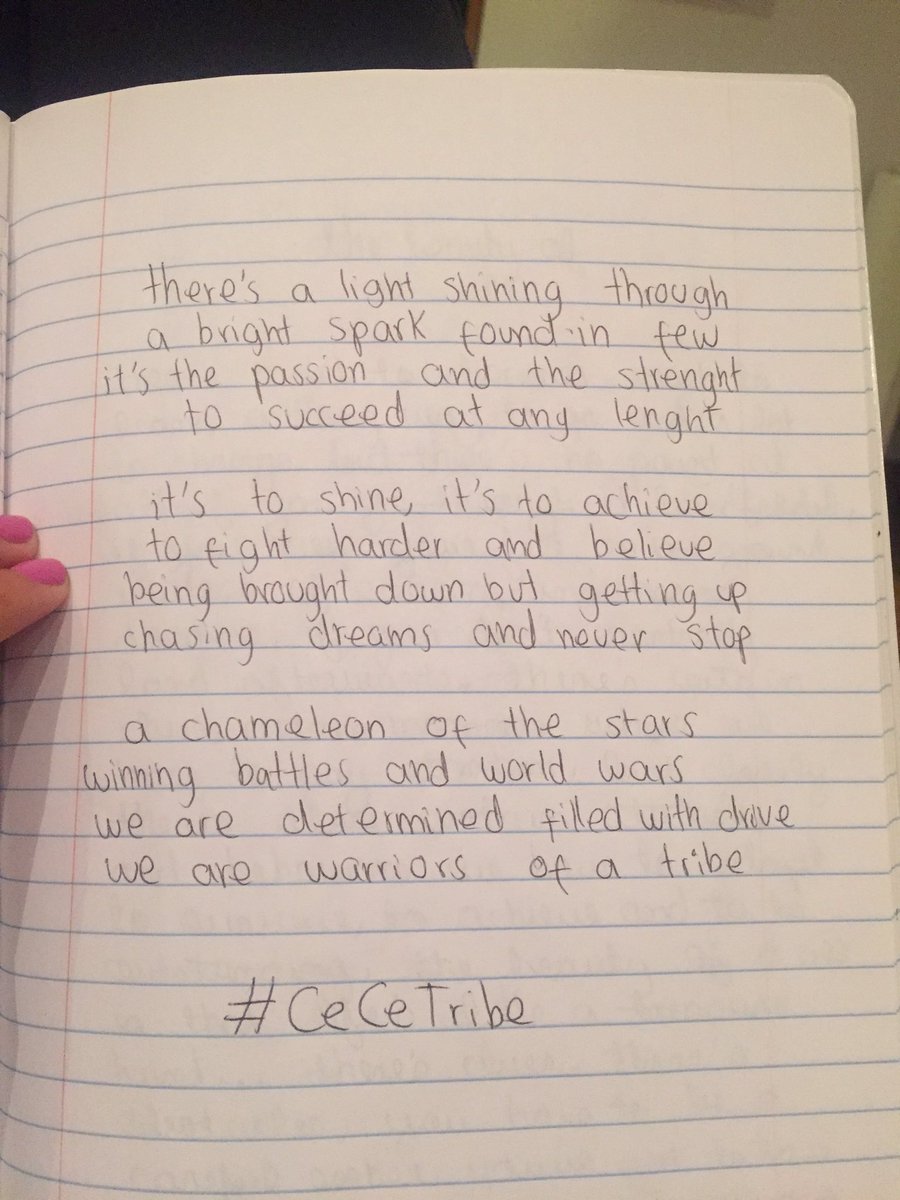 there's a light shining through
a bright spark found in few
it's the passion and the strenght
to succeed at any lenght
it's to shine, it's to achieve
to fight harder and believe
being brought down but getting up
chasing dreams and never stop
a chameleon of the stars
winning battles and world wars
we are determined filled with drive
we are warriors of a tribe
#CeCeTribe